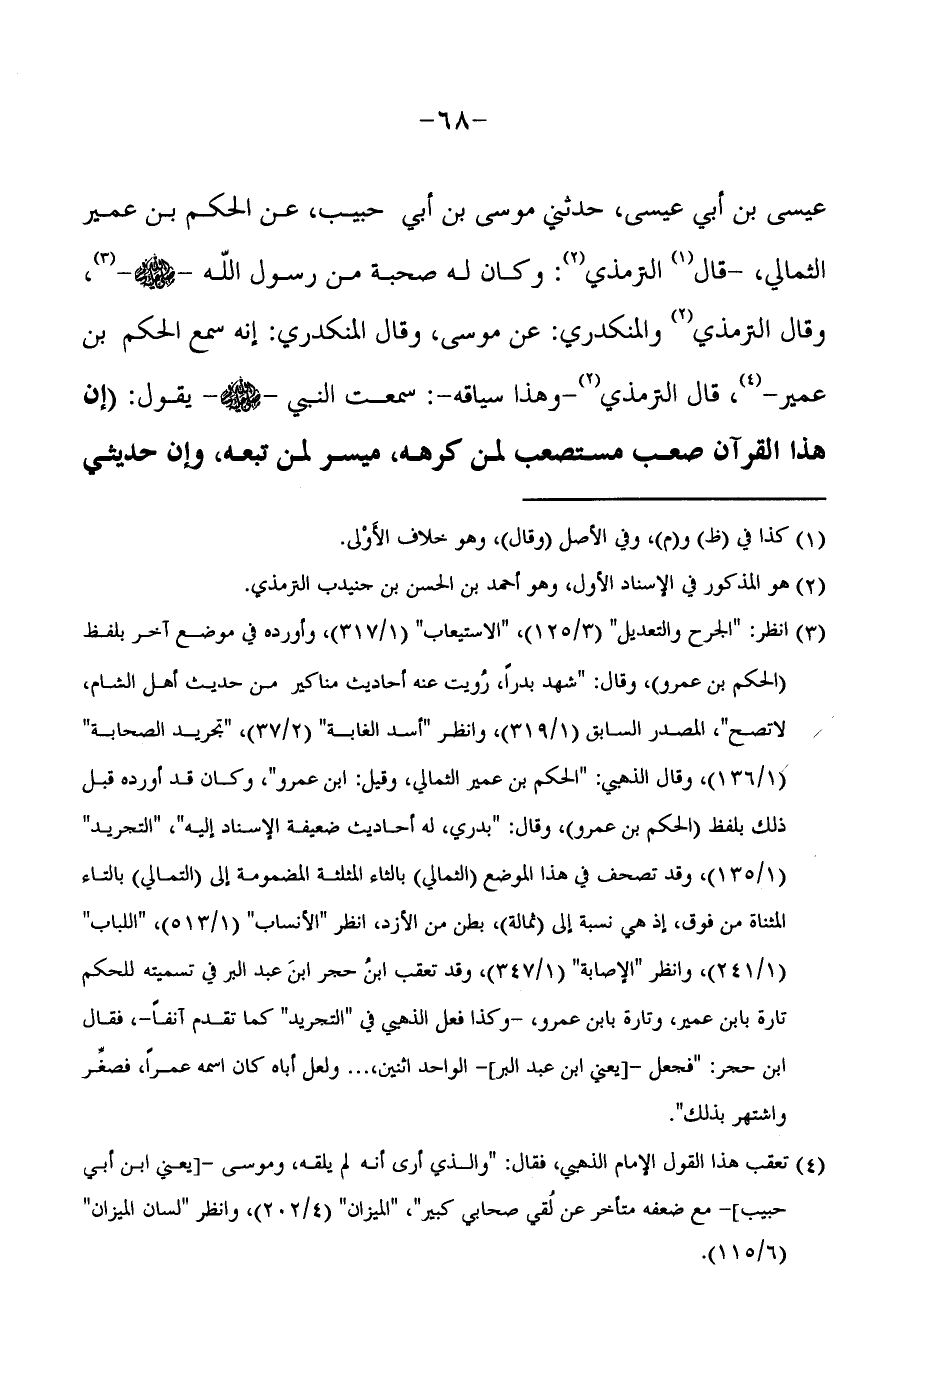 -٦٨-
عيسى بن أبي عيسى، حدثني موسى بن أبي حبيب، عن الحكم بن عمير
الثمالي، -قال(١) الترمذي(٢): وكان له صحبة من رسول الله -ﷺ-(٣)،
وقال الترمذي(٢) والمنكدري: عن موسى، وقال المنكدري: إنه سمع الحكم بن
عمير-(٤)، قال الترمذي(٢)-وهذا سياقه-: سمعت النبي -ﷺ- يقول: (إن
هذا القرآن صعب مستصعب لمن كرهه، ميسر لمن تبعه، وإن حديثي
(١) كذا في (ظ) و(م)، وفي الأصل (وقال)، وهو خلاف الأَوْلى.
(٢) هو المذكور في الإسناد الأول، وهو أحمد بن الحسن بن جنيدب الترمذي.
(٣) انظر: "الجرح والتعديل" (١٢٥/٣)، "الاستيعاب" (٣١٧/١)، وأورده في موضع آخر بلفظ
(الحكم بن عمرو)، وقال: "شهد بدراً، رُويت عنه أحاديث مناكير من حديث أهل الشام،
لاتصح"، المصدر السابق (٣١٩/١)، وانظر "أسد الغابة" (٣٧/٢)، "تجريد الصحابة"
(١٣٦/١)، وقال الذهبي: "الحكم بن عمير الثمالي، وقيل: ابن عمرو"، وكان قد أورده قبل
ذلك بلفظ (الحكم بن عمرو)، وقال: "بدري، له أحاديث ضعيفة الإسناد إليه"، "التجريد"
(١٣٥/١)، وقد تصحف في هذا الموضع (الثمالي) بالثاء المثلثة المضمومة إلى (التمالي) بالتاء
المثناة من فوق، إذ هي نسبة إلى (ثمالة)، بطن من الأزد، انظر "الأنساب" (٥١٣/١)، "اللباب"
(٢٤١/١)، وانظر "الإصابة" (٣٤٧/١)، وقد تعقب ابنُ حجر ابنَ عبد البر في تسميته للحكم
تارة بابن عمير، وتارة بابن عمرو، -وكذا فعل الذهبي في "التجريد" كما تقدم آنفاً-، فقال
ابن حجر: "فجعل -[يعني ابن عبد البر]- الواحد اثنين،... ولعل أباه كان اسمه عمراً، فصغِّر
واشتهر بذلك".
(٤) تعقب هذا القول الإمام الذهبي، فقال: "والذي أرى أنه لم يلقه، وموسى -[يعني ابن أبي
حبيب]- مع ضعفه متأخر عن لُقي صحابي كبير"، "الميزان" (٢٠٢/٤)، وانظر "لسان الميزان"
(١١٥/٦).